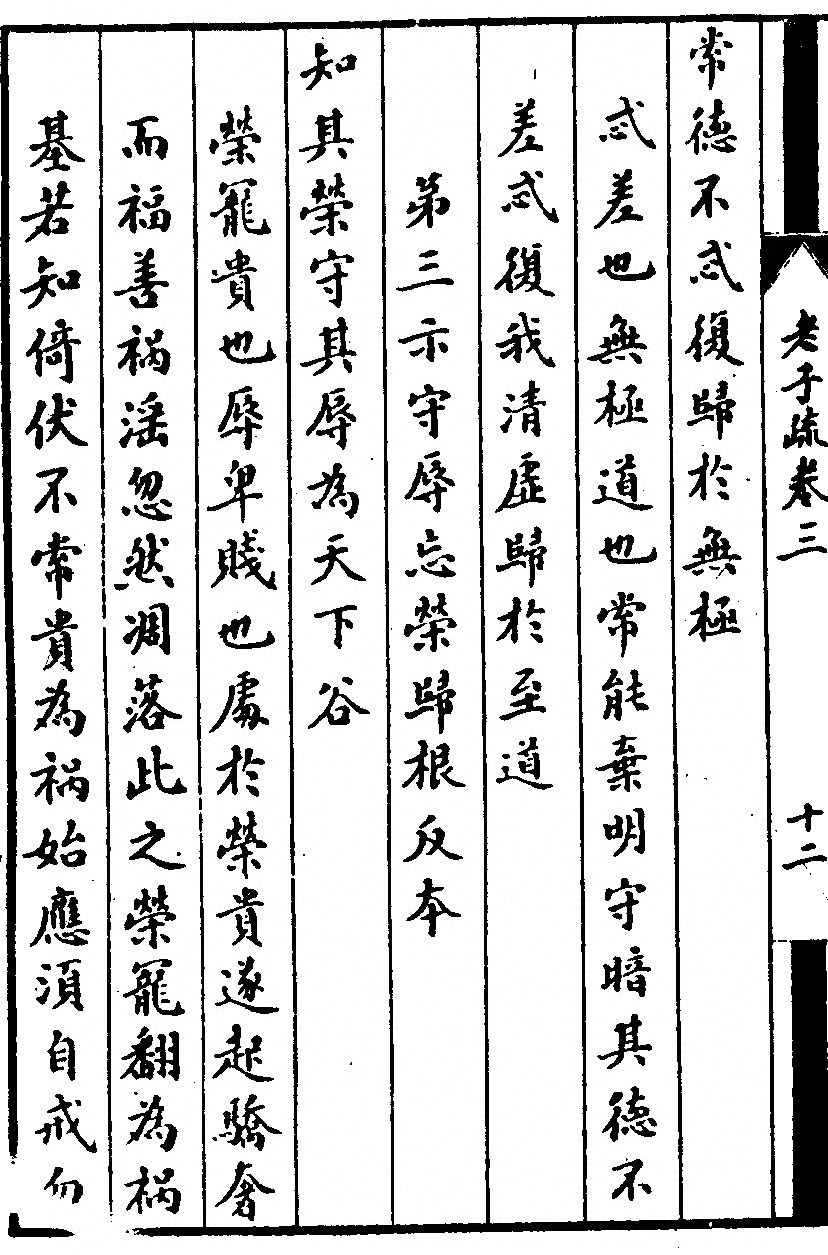 老子疏卷三
十二
常德不忒復歸於無極
忒差也無極道也常能棄明守暗其德不
差忒復我清虛歸於至道
第三示守辱忘榮歸根反本
知其榮守其辱為天下谷
榮寵貴也辱卑賤也處於榮貴遂起驕奢
而福善禍淫忽然凋落此之榮寵翻為禍
基若知倚伏不常貴為禍始應須自戒勿